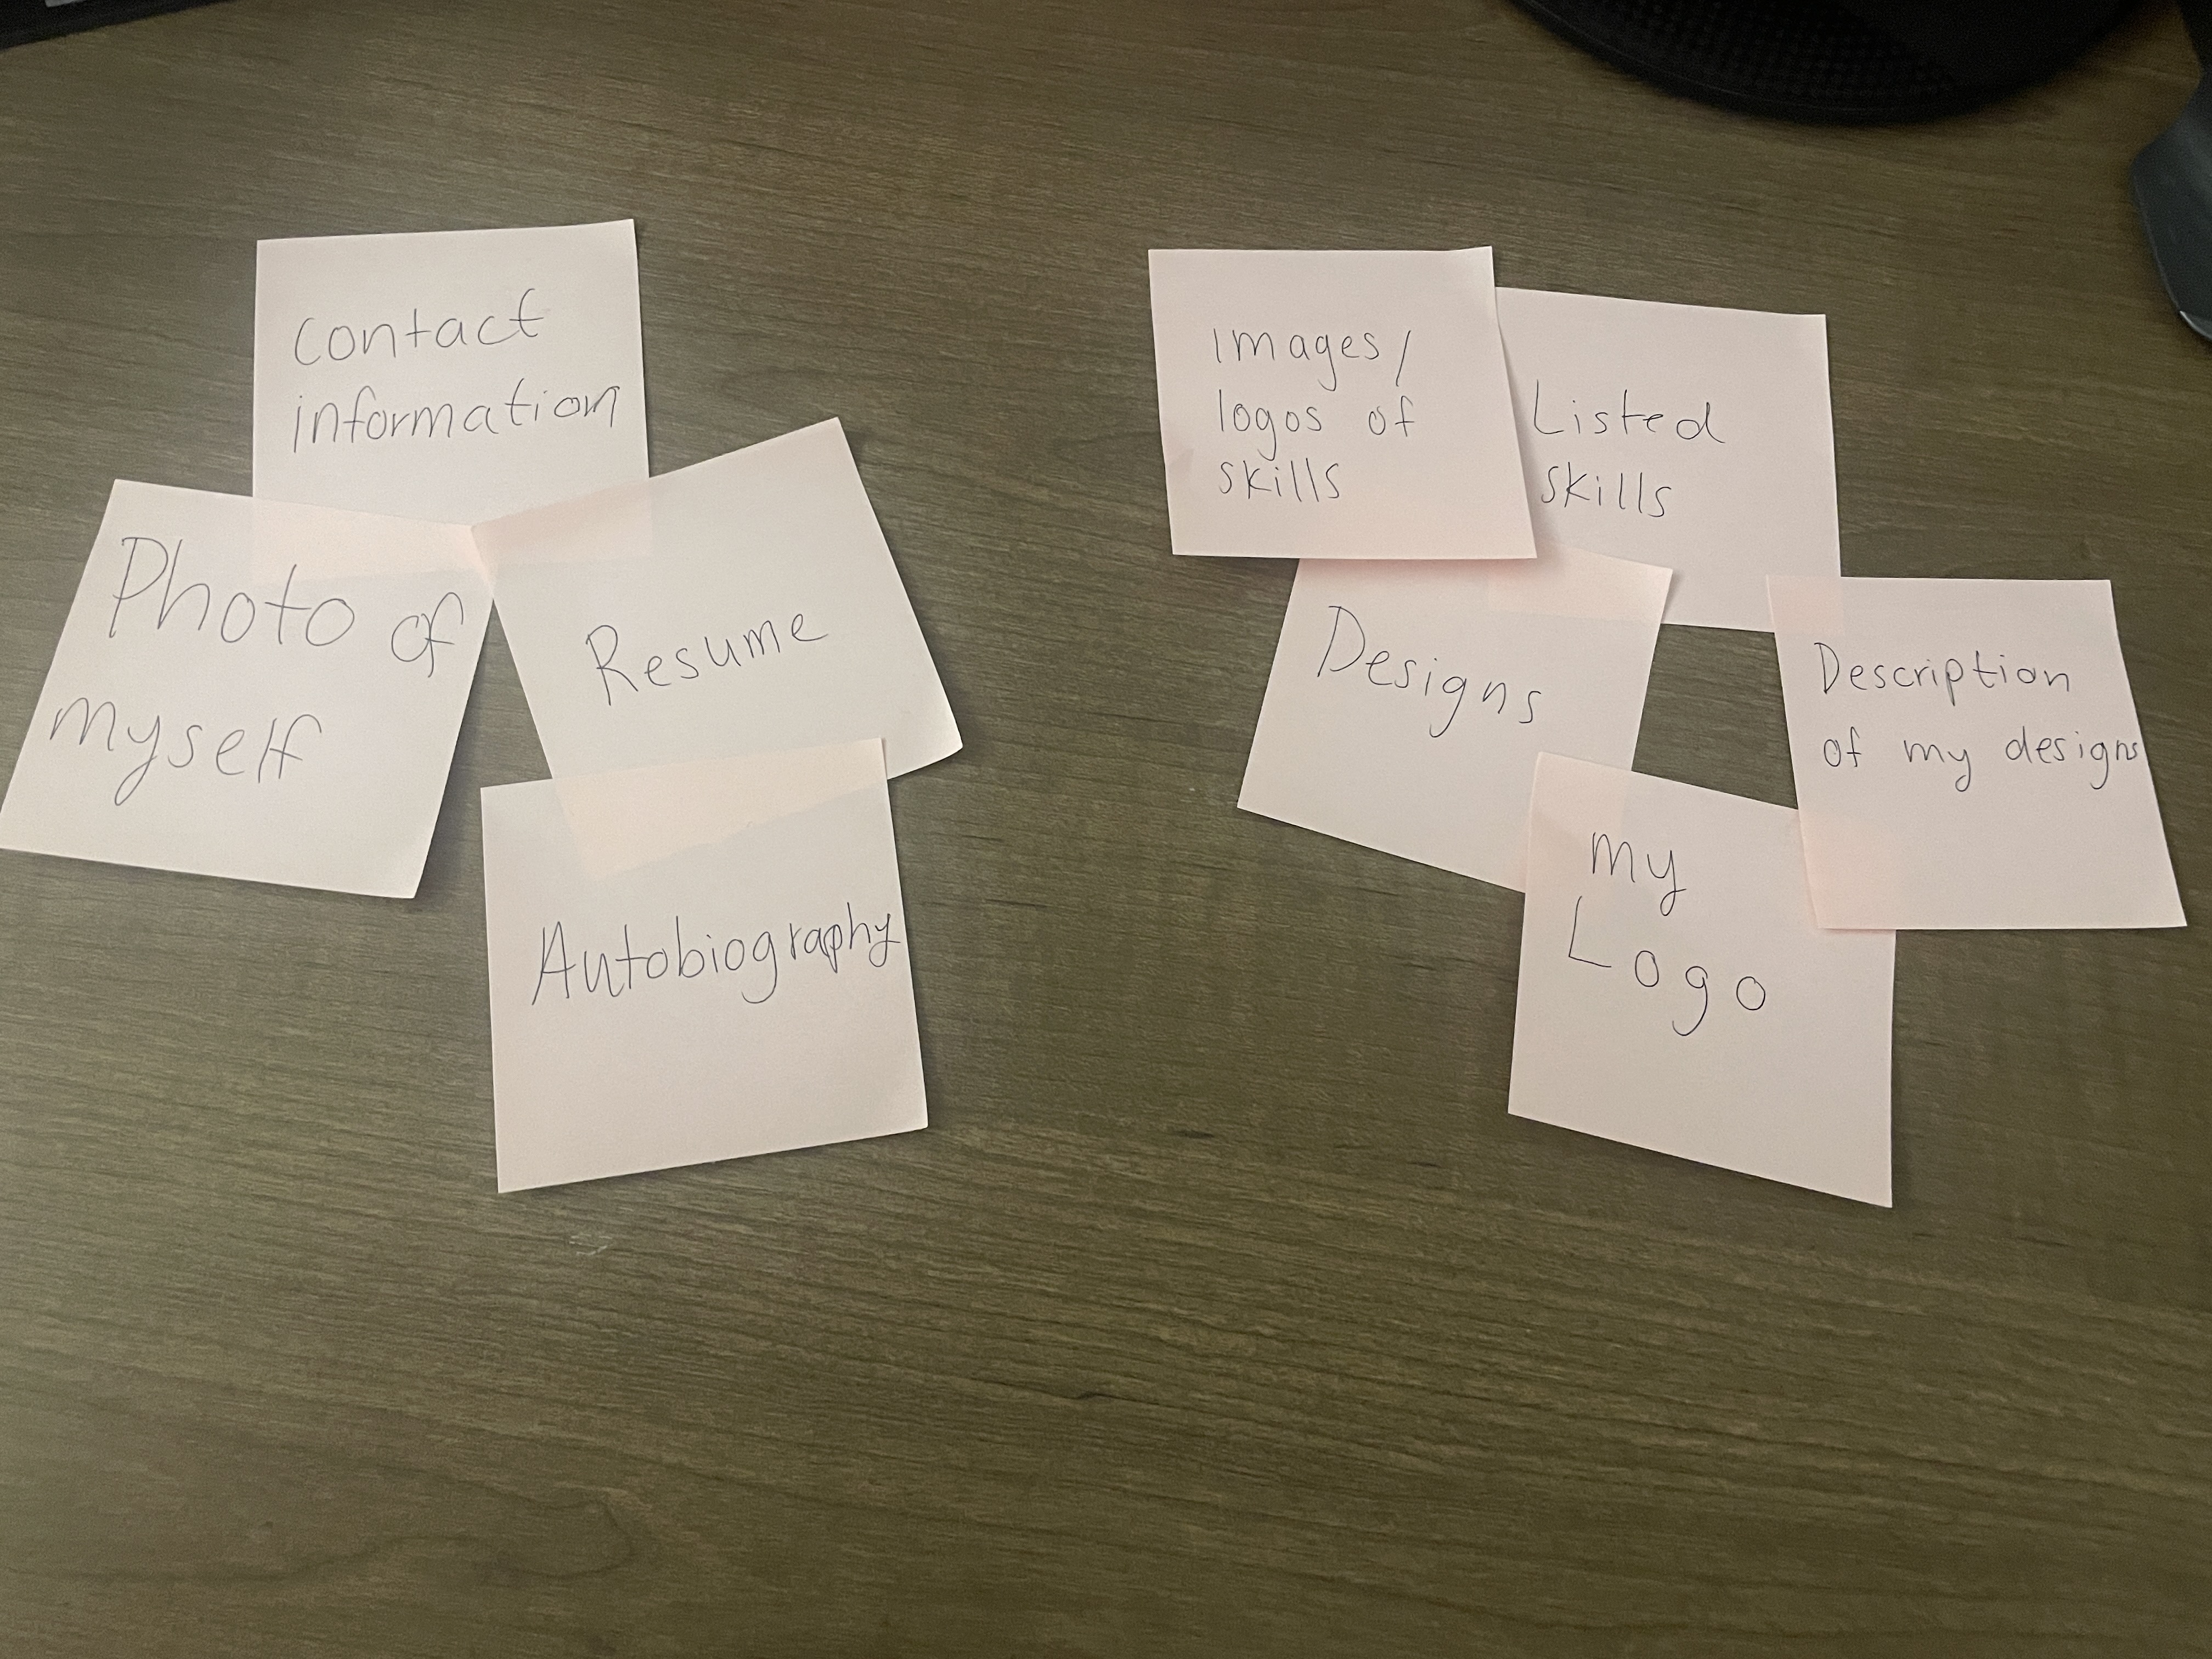 Contact
information
Photo of
myself
Resume
Autobiography
Images/
logos of
skills
Listed
skills
Designs
my
Logo
Description
of my designs